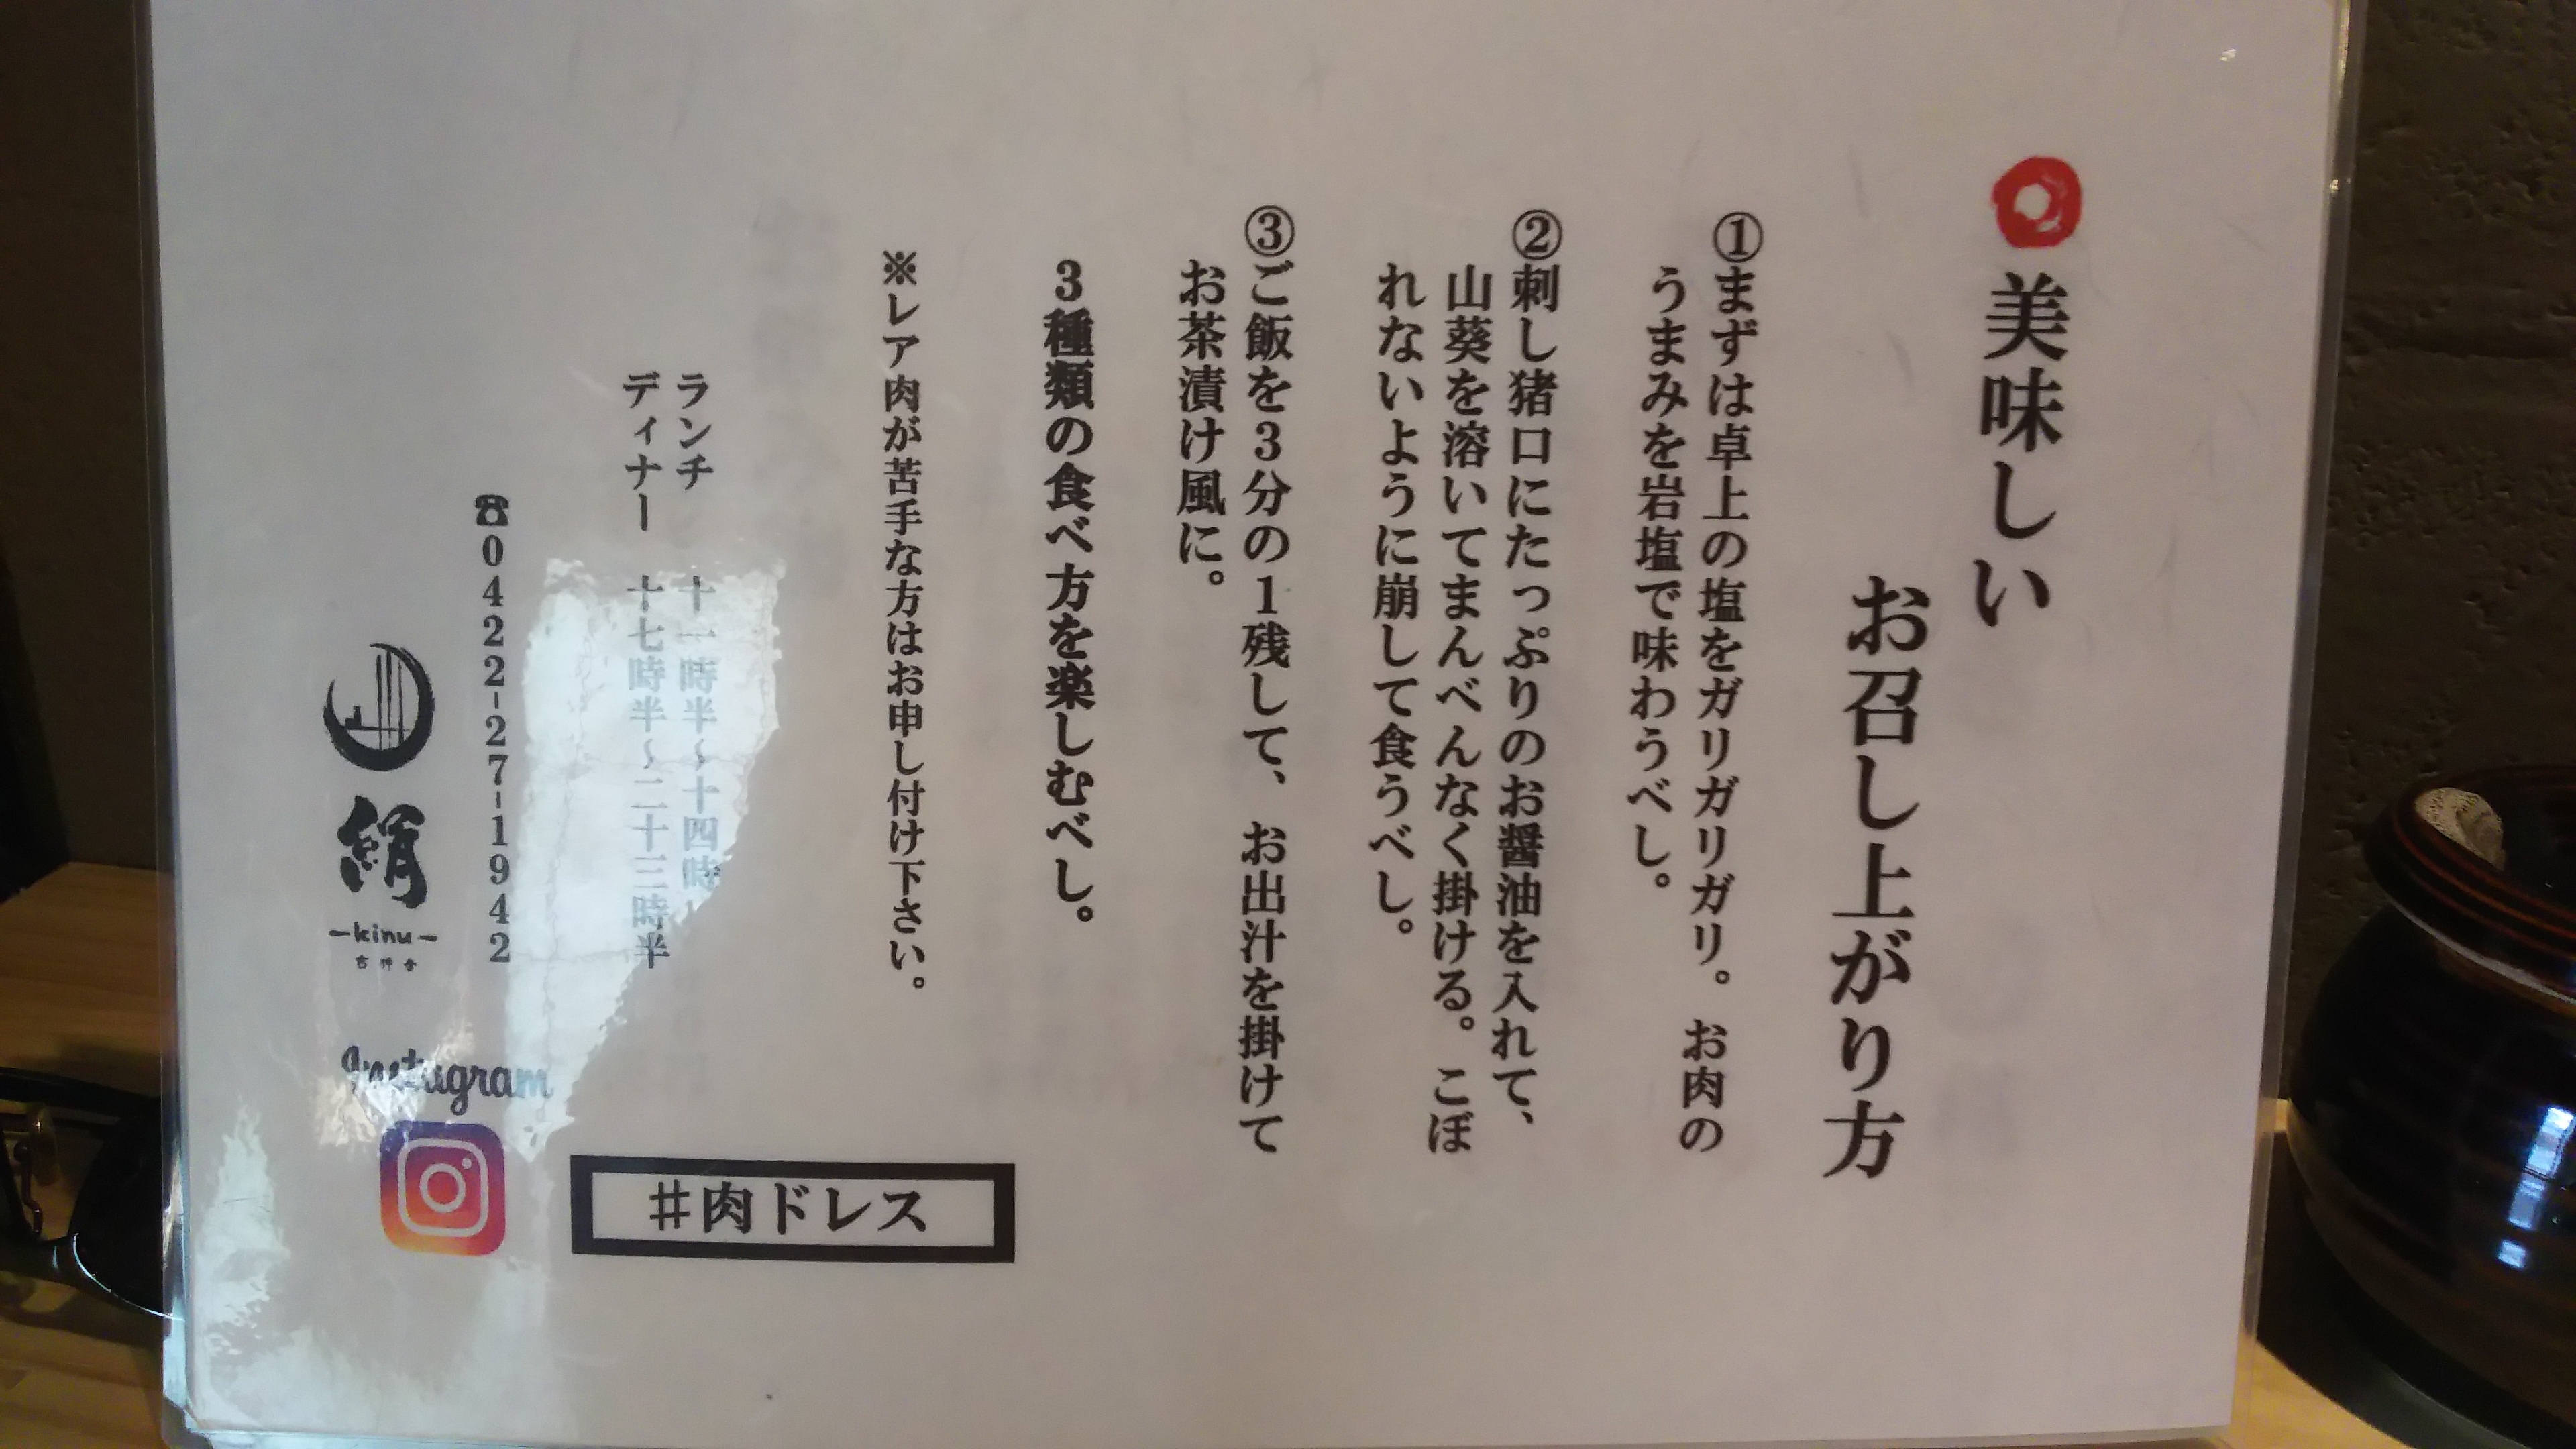 美味しい
お召し上がり方
①まずは卓上の塩をガリガリガリ。お肉の
うまみを岩塩で味わうべし。
②刺し猪口にたっぷりのお醤油を入れて、
山葵を溶いてまんべんなく掛ける。こぼ
れないように崩して食うべし。
③ご飯を3分の1残して、お出汁を掛けて
お茶漬け風に。
3種類の食べ方を楽しむべし。
※レア肉が苦手な方はお申し付け下さい。
ランチ 十一時半〜十四時
ディナー 十七時半〜二十三時半
☎0422-27-1942
絹
-kinu-
吉祥寺
Instagram
#肉ドレス